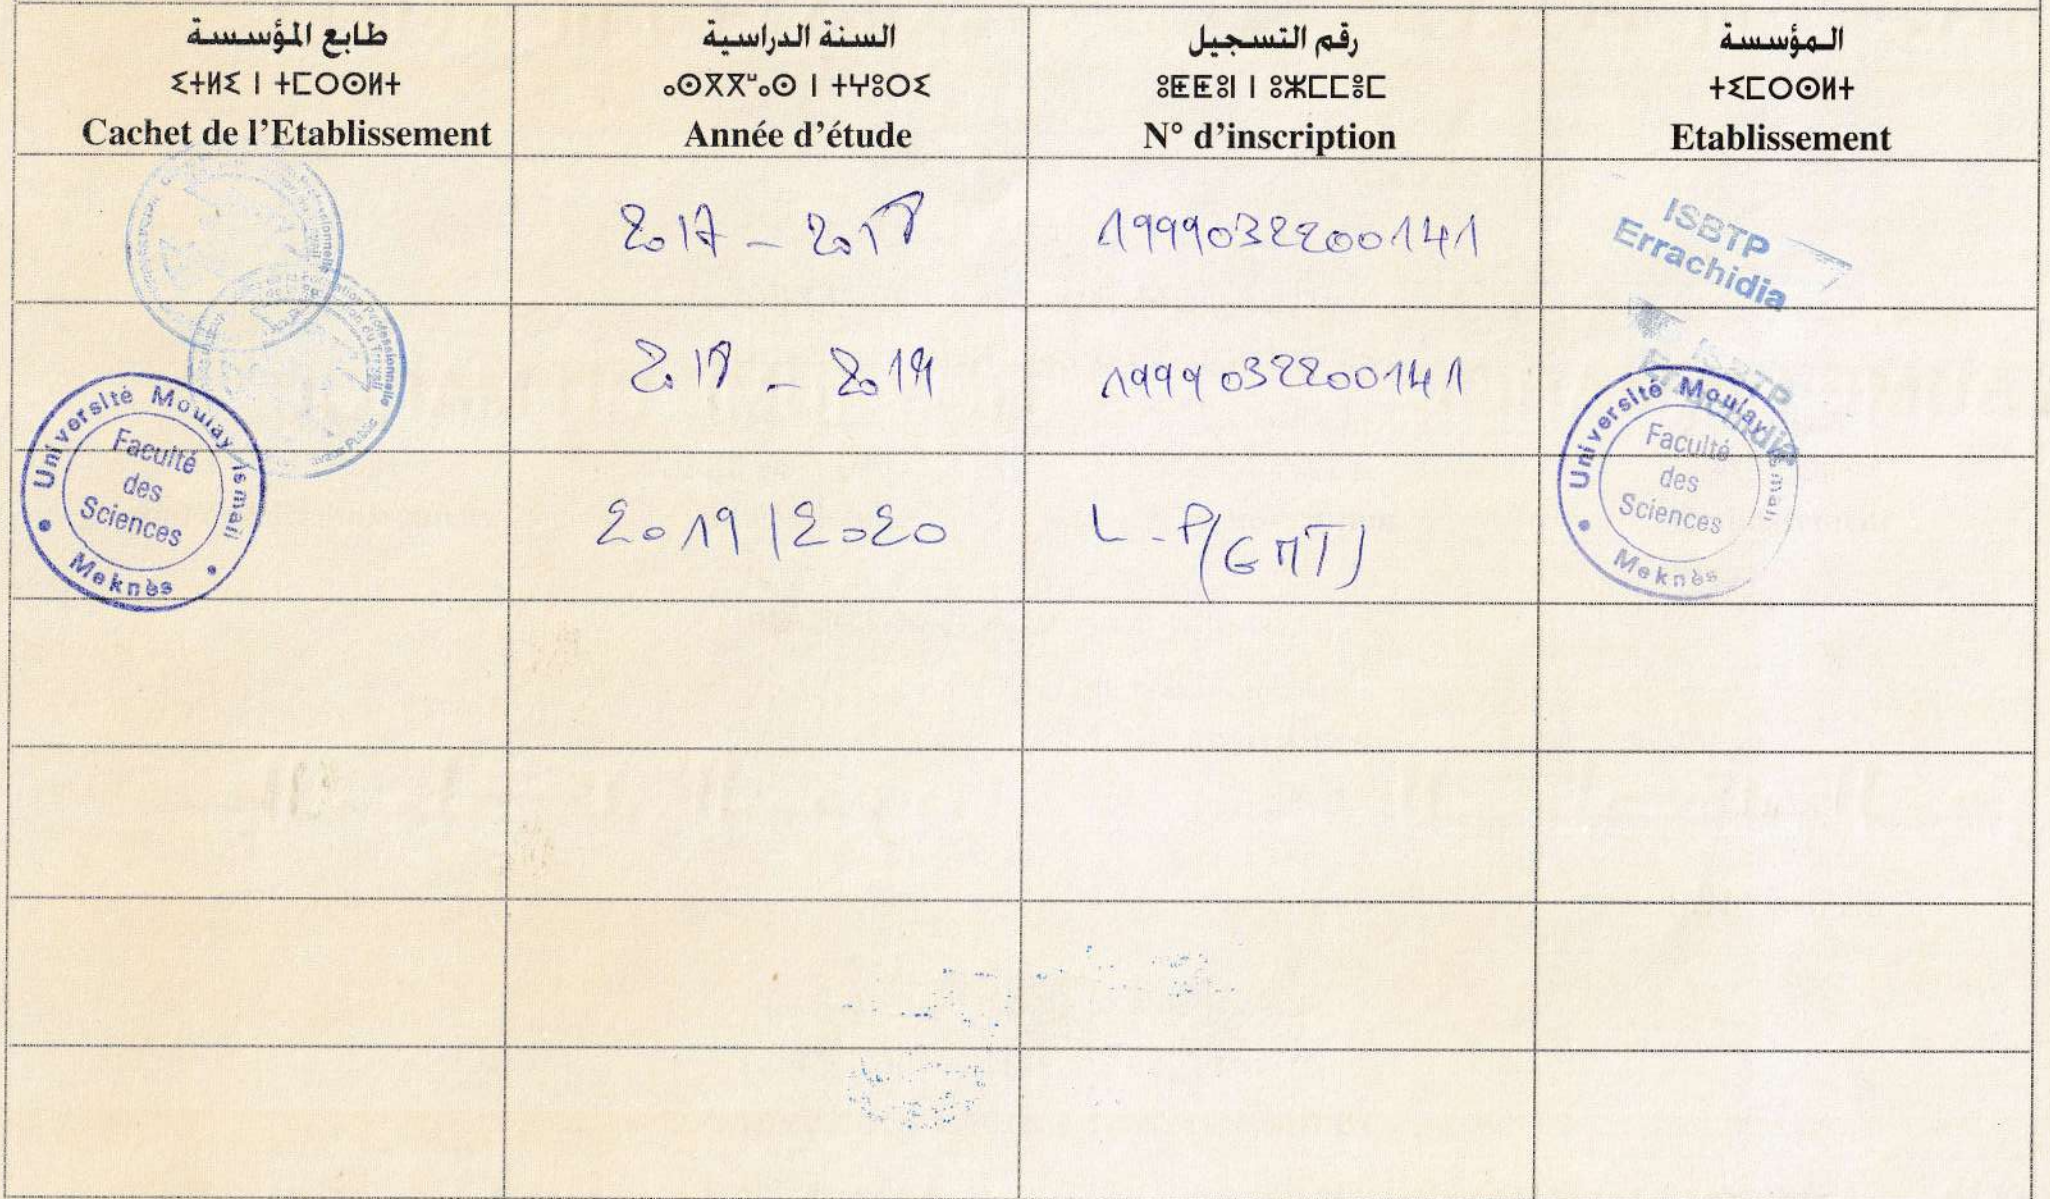 طابع المؤسسة
ⵉⵜⵍⵉ ⵏ ⵜⵎⵔⵙⵍⵜ
Cachet de l'Etablissement
السنة الدراسية
ⴰⵙⴳⴳⵯⴰⵙ ⵏ ⵜⵖⵓⵔⵉ
Année d'étude
رقم التسجيل
ⵓⵟⵟⵓⵏ ⵏ ⵓⵣⵎⵎⵓⵎ
N° d'inscription
المؤسسة
ⵜⵉⵎⵔⵙⵍⵜ
Etablissement
2017 - 2018
1999032200141
ISBTP
Errachidia
2018 - 2019
1999032200141
ISBTP
Errachidia
Université Moulay Ismail
Faculté
des
Sciences
Meknès
2019/2020
L-P(GMT)
Université Moulay Ismail
Faculté
des
Sciences
Meknès